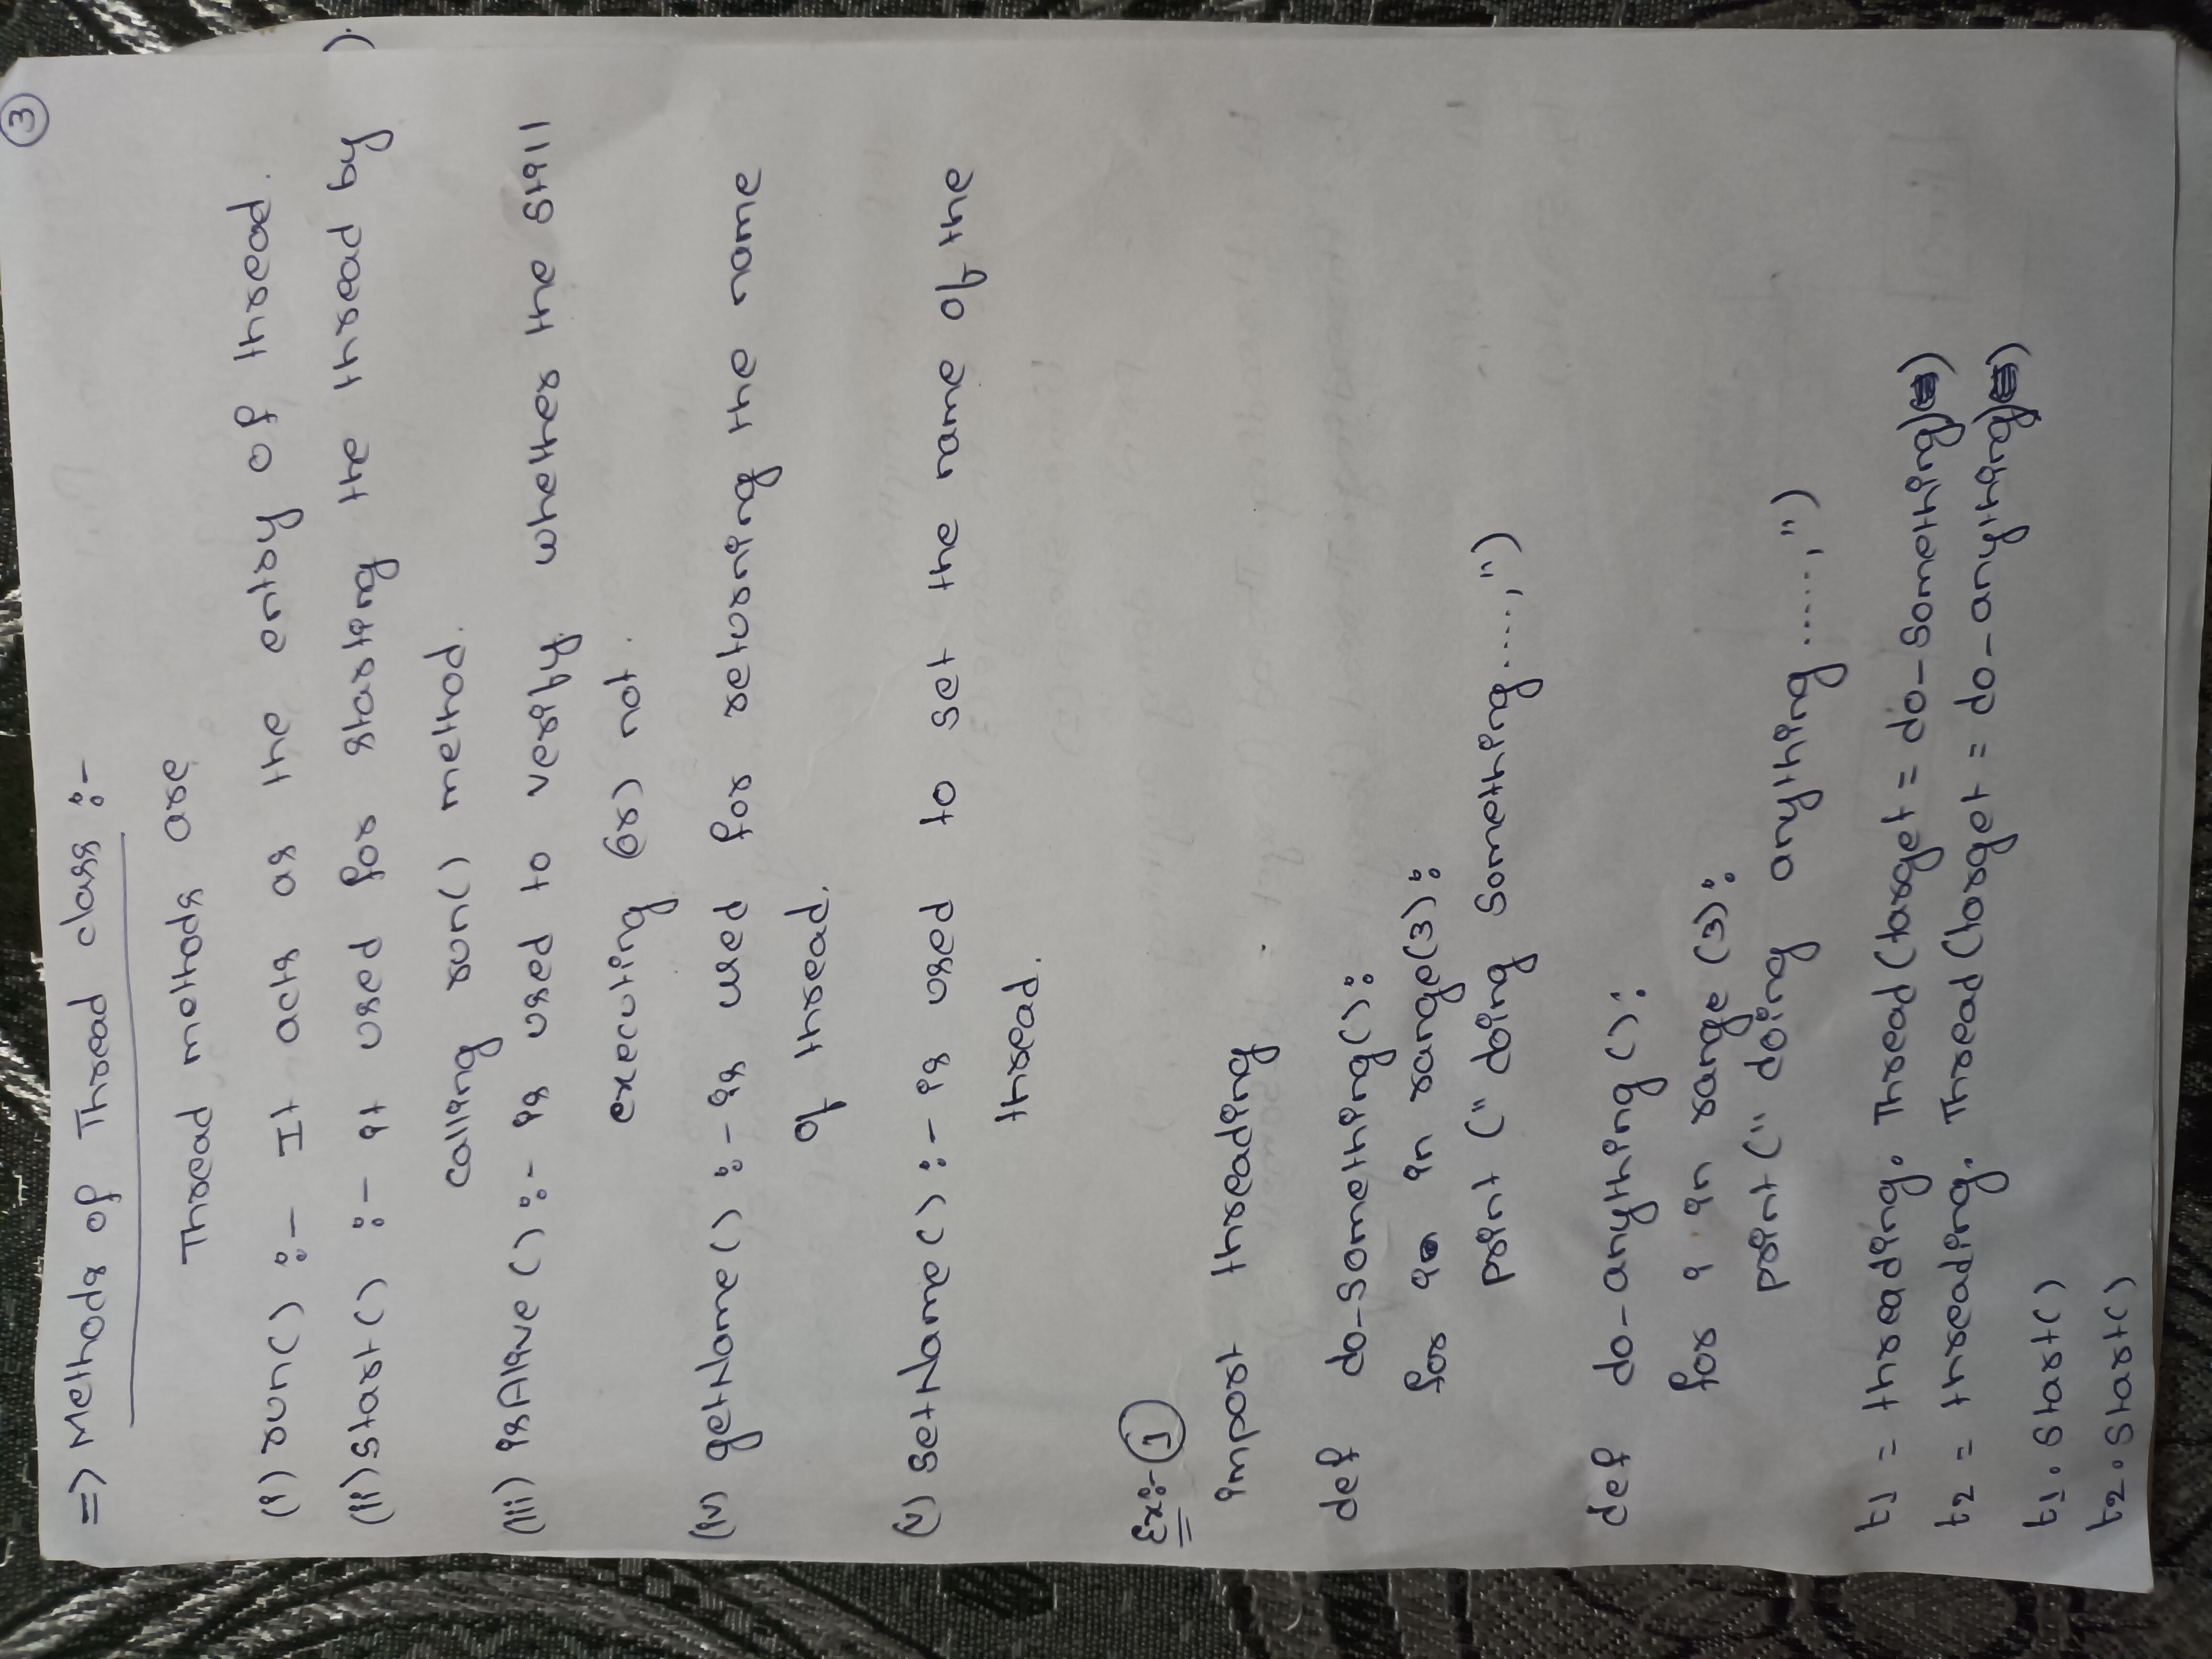 3
=> Methods of Thread class :-
Thread methods are
(i) run() :- It acts as the entry of thread.
(ii) start() :- it used for starting the thread by
calling run() method.
(iii) isAlive() :- is used to verify whether the still
executing (or) not.
(iv) getName() :- is used for returning the name
of thread.
(v) setName() :- is used to set the name of the
thread.
Ex:- 1
import threading
def do-something():
for i in range(3):
print (" doing something....,")
def do-anything():
for i in range (3):
print (" doing anything.....,")
t1 = threading. Thread (target = do-something))
t2 = threading. Thread (target = do-anything))
t1. start()
t2. start()